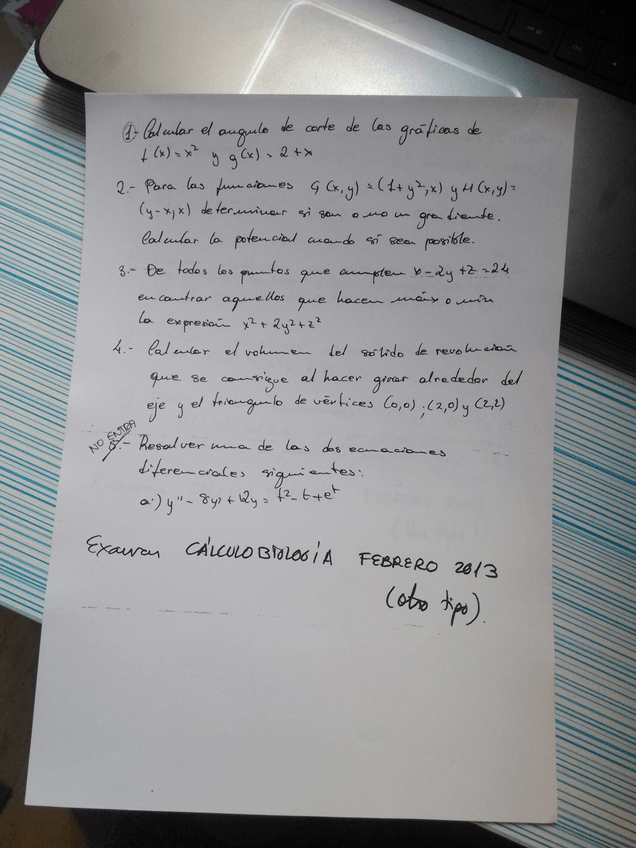 1.- Calcular el angulo de corte de las gráficas de
f(x) = x² y g(x) = 2+x
2.- Para las funciones G(x,y) = (1+y²,x) y H(x,y)=
(y-x,x) determinar si son o no un gradiente.
Calcular la potencial cuando si sea posible.
3.- De todos los puntos que cumplen x-2y+z=24
encontrar aquellos que hacen máx o mín
la expresión x²+2y²+z²
4.- Calcular el volumen del sólido de revolución
que se consigue al hacer girar alrededor del
eje y el triangulo de vértices (0,0);(2,0) y (2,2)
NO ENTRA
5.- Resolver una de las dos ecuaciones
diferenciales siguientes:
a.) y'' - 8y' + 12y = t² - t + eᵗ
Examen CÁLCULO BIOLOGÍA FEBRERO 2013
(otro tipo).